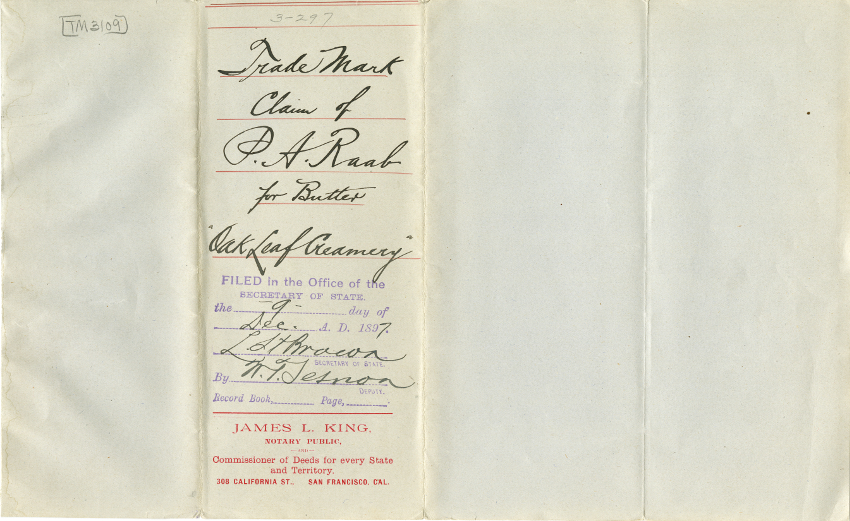 TM3109
3-297
Trade Mark
Claim of
P. A. Raab
for Butter
"Oak Leaf Creamery"
FILED in the Office of the
SECRETARY OF STATE,
the -9- day of
Dec. A. D. 1897.
L. H. Brown
SECRETARY OF STATE.
By W. T.
DEPUTY.
Record Book, Page,
JAMES L. KING,
NOTARY PUBLIC,
—AND—
Commissioner of Deeds for every State
and Territory.
308 CALIFORNIA ST., SAN FRANCISCO, CAL.